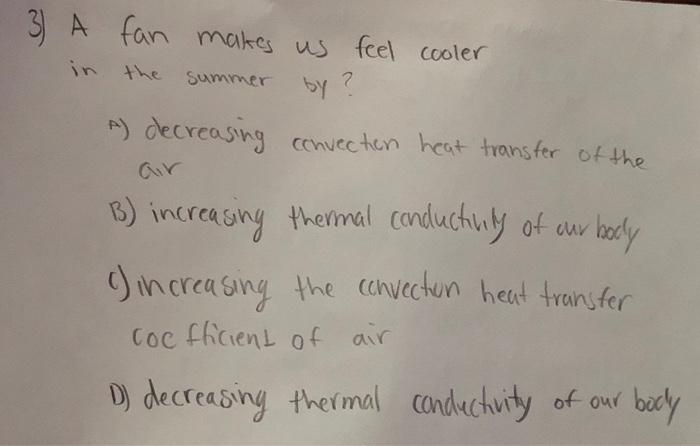 3) A fan makes us feel cooler
in the summer by ?
A) decreasing convection heat transfer of the
air
B) increasing thermal conductivity of our body
C) increasing the convection heat transfer
coefficient of air
D) decreasing thermal conductivity of our body